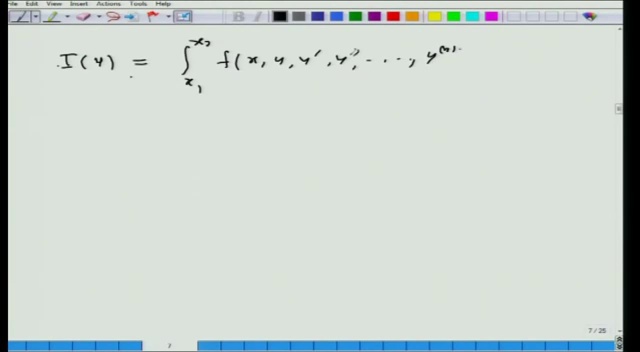 File Edit View Insert Actions Tools Help
I(y) = ∫_{x₁}^{x₂} f(x, y, y', y'', ....., y^{(n)}
7 / 25
7